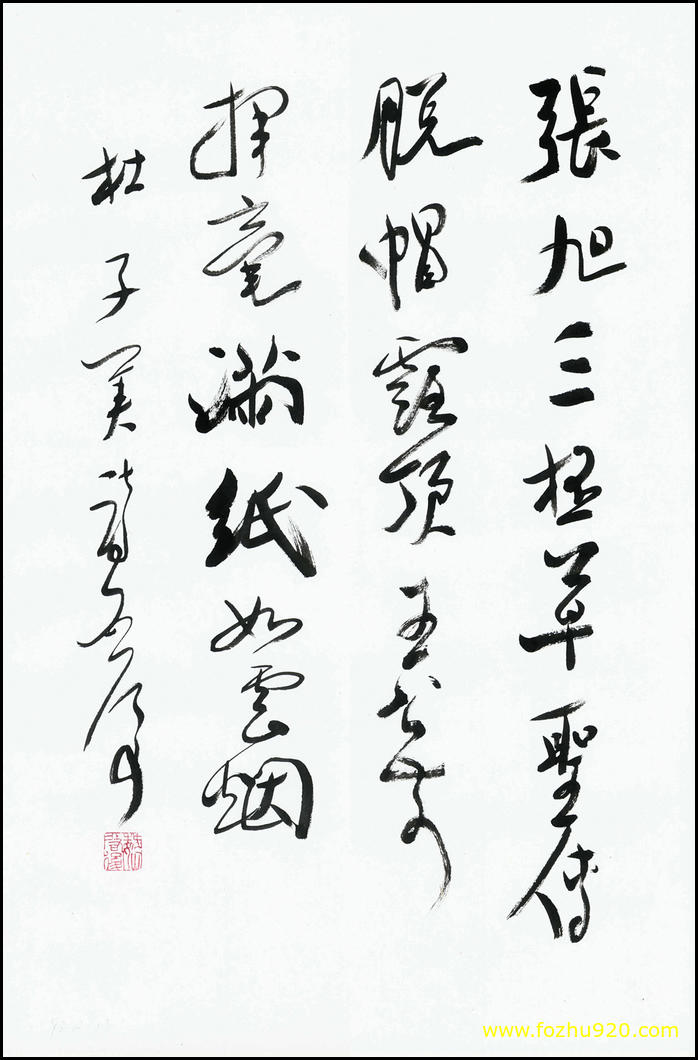 張旭三杯草聖傳
脱帽露頂王公前
揮毫滿紙如雲烟
杜子美詩
www.fozhu920.com